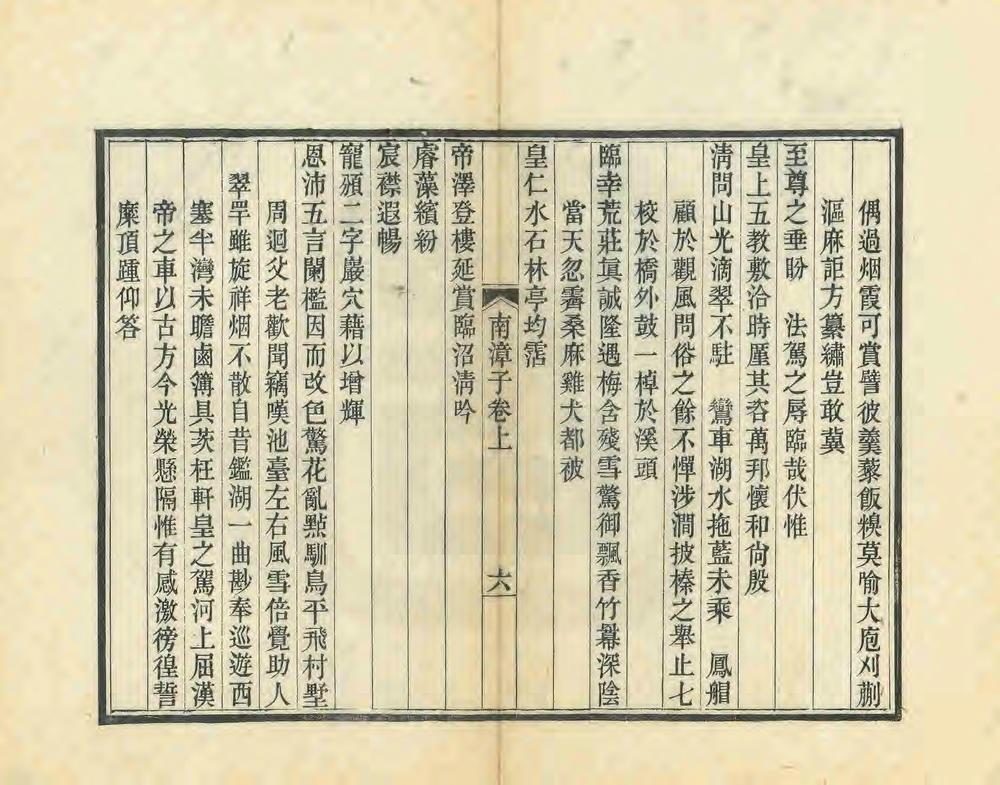 偶過烟霞可賞譬彼羹藜飯糗莫喻大庖刈蒯
漚麻詎方纂繡豈敢冀
至尊之垂盼　法駕之辱臨哉伏惟
皇上五教敷洽時厪其咨萬邦懷和尙殷
淸問山光滴翠不駐　鸞車湖水拖藍未乘　鳳艒
顧於觀風問俗之餘不憚涉澗披榛之舉止七
校於橋外鼓一棹於溪頭
臨幸荒莊眞誠隆遇梅含殘雪驚御飄香竹羃深陰
當天忽霽桑麻雞犬都被
皇仁水石林亭均霑
南漳子卷上
六
帝澤登樓延賞臨沼淸吟
睿藻繽紛
宸襟遐暢
寵頒二字巖穴藉以增輝
恩沛五言闌檻因而改色驚花亂點馴鳥平飛村墅
周迴父老歡聞竊嘆池臺左右風雪倍覺助人
翠罕雖旋祥烟不散自昔鑑湖一曲尠奉巡遊西
塞半灣未瞻鹵簿具茨枉軒皇之駕河上屈漢
帝之車以古方今光榮懸隔惟有感激徬徨誓
糜頂踵仰答